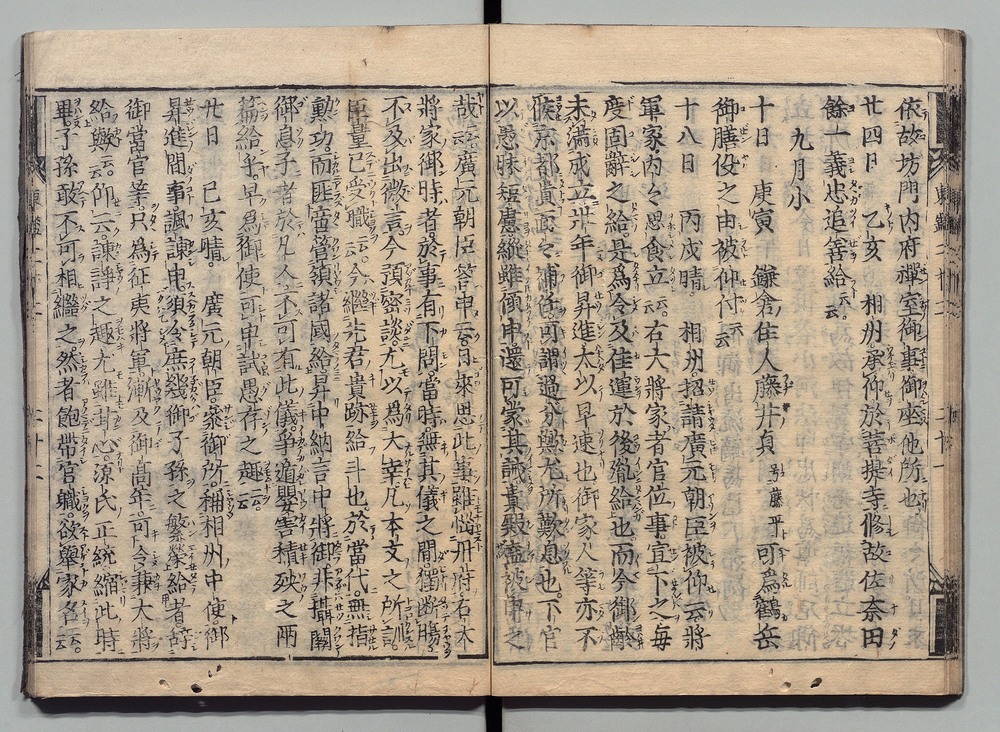 依故坊門内府禪室御事御座他所也
廿四日　乙亥　相州承仰於菩提寺修故佐奈田
餘一義忠追善給云云
九月小
十日　庚寅　鎌倉住人藤井貞号藤平可為鶴岳
御膳役之由被仰付云云
十八日　丙戌晴　相州招請廣元朝臣被仰云將
軍家内々思食立云云右大將家者官位事宣下之毎
度固辞之給是爲令及佳運於後胤給也而今御齢
未満成立廾年御昇進太以早速也御家人等亦不
候京都貴面々補任可謂過分歟尤所歎息也下官
以愚昧短慮縱雖傾申還可蒙其誡貴殿盍被申之
哉云云廣元朝臣答申云日來思此事雖惱丹府右大
將家御時者於事有下問當時無其儀之間獨断腸
不及出微言今預密談尤以爲大幸凡本文之所訓
臣量己受職云云今繼先君貴跡給斗也於當代無指
勲功而匪啻管領諸國給昇中納言中將御非攝關
御息子者於凡人不可有此儀爭遁嬰害積殃之兩
篇給乎早為御使可申試愚存之趣云云
廿日　己亥晴　廣元朝臣參御所稱相州中使御
昇進間事諷諫申須令庶幾御子孫之繁榮給者辞
御當官等只為征夷將軍漸及御高年可令兼大將
給歟云云仰云諫諍之趣尤雖甘心源氏正統縮此時
畢子孫敢不可相繼之然者飽帶官職欲舉家名云云
東鑑
二十一
二十二